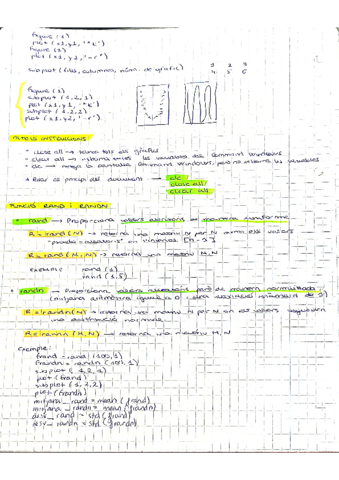 figure (1)
plot (x1, y1, '*k')
figure (2)
plot (x1, y2, '-r')
subplot (files, columnes, núm. de gràfic)
1 2 3
4 5 6
figure (1)
subplot (1, 2, 1)
plot (x1, y1, '*k')
subplot (1, 2, 2)
plot (x1, y2, '-r')
ALTRES INSTRUCCIONS
close all → tanca tots els gràfics
clear all → elimina totes les variables del Command Windows
clc → neteja la pantalla Command Windows, però no elimina les variables
principi del document → clc
close all
clear all
FUNCIÓ RAND I RANDN
rand → Proporciona valors aleatoris de manera uniforme
R = rand(N) → retorna una matriu N per N amb els valors
R = rand(M,N) → retorna una matriu M,N
EXEMPLE: rand (1)
rand (1,5)
randn → Proporciona valors aleatoris però de manera normalitzada
(mitjana aritmètica i una desviació estàndard de 1)
R = randn(N) → retorna una matriu N per N on els valors segueixen
una distribució normal
R = randn (M,N) → retorna una matriu M,N
Exemple:
frand = rand (100, 1)
frandn = randn (100, 1)
subplot (1, 2, 1)
plot (frand)
subplot (1, 2, 2)
plot (frandn)
mitjana_rand = mean (frand)
mitjana_randn = mean (frandn)
desv_rand = std (frand)
desv_randn = std (frandn)